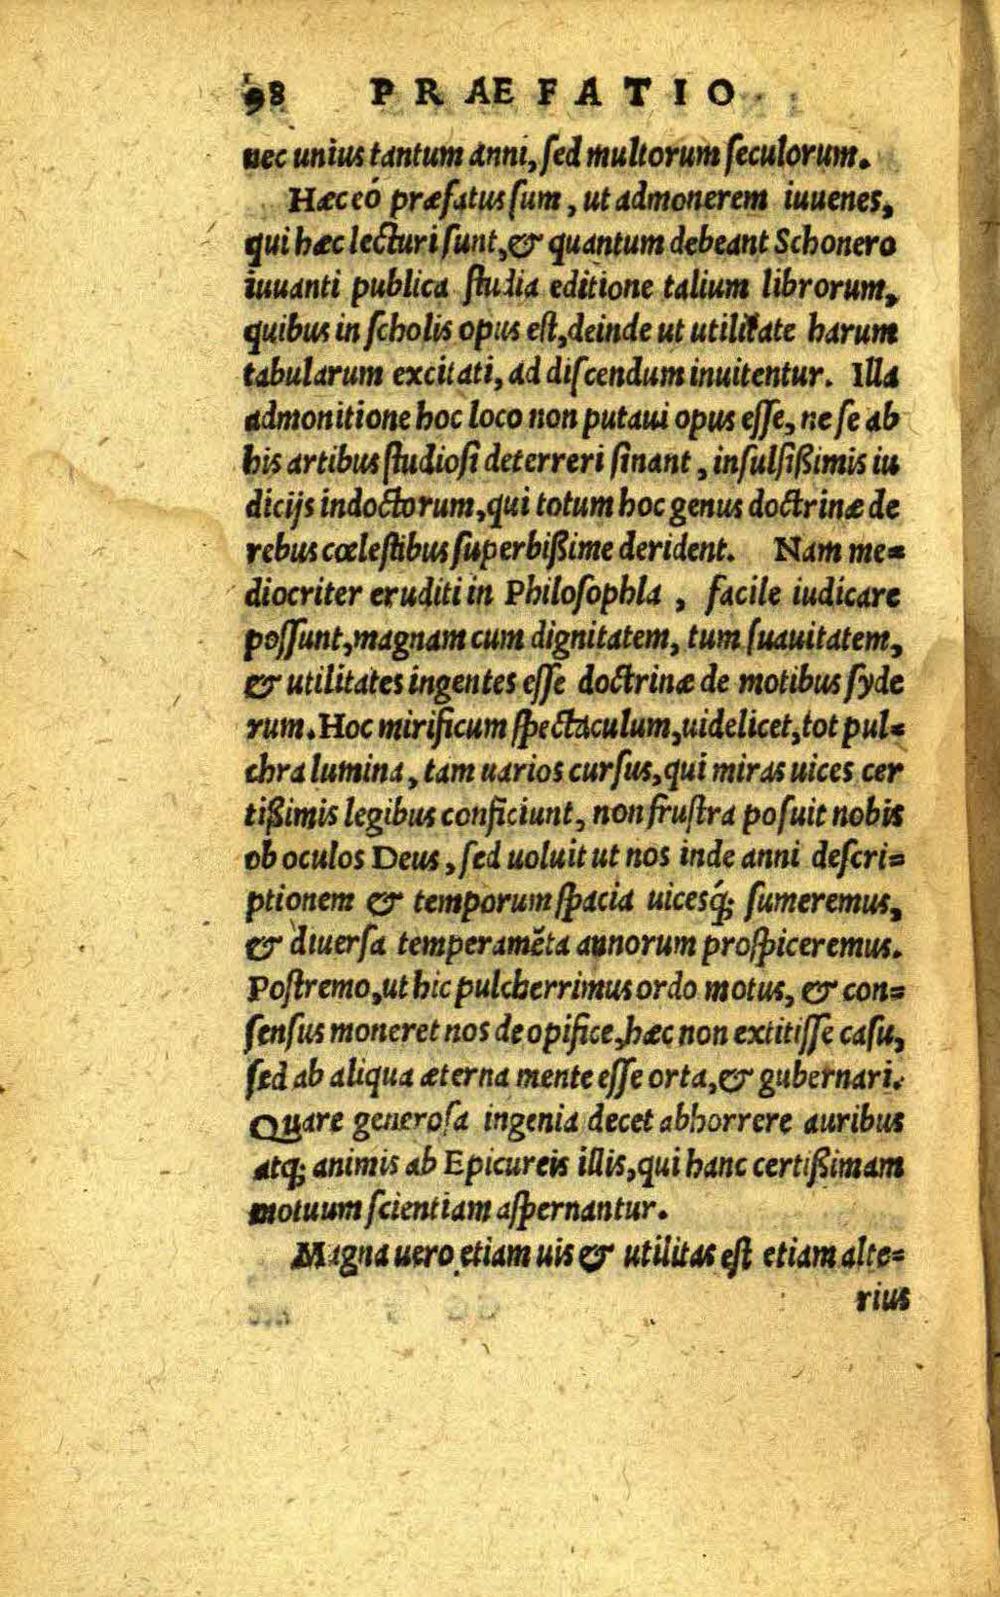 98 PRAEFATIO.
nec unius tantum anni, sed multorum seculorum.
Hæc eó præfatus sum, ut admonerem iuuenes,
qui hæc lecturi sunt, & quantum debeant Schonero
iuuanti publica studia editione talium librorum,
quibus in scholis opus est, deinde ut utilitate harum
tabularum excitati, ad discendum inuitentur. Illa
admonitione hoc loco non putaui opus esse, ne se ab
his artibus studiosi deterreri sinant, insulsißimis iu
dicijs indoctorum, qui totum hoc genus doctrinæ de
rebus cœlestibus superbißime derident. Nam me=
diocriter eruditi in Philosophla, facile iudicare
possunt, magnam cum dignitatem, tum suauitatem,
& utilitates ingentes esse doctrinæ de motibus syde
rum. Hoc mirificum spectaculum, uidelicet, tot pul=
chra lumina, tam uarios cursus, qui miras uices cer
tißimis legibus conficiunt, non frustra posuit nobis
ob oculos Deus, sed uoluit ut nos inde anni descri=
ptionem & temporum spacia uicesq́; sumeremus,
& diuersa temperamẽta annorum prospiceremus.
Postremo, ut hic pulcherrimus ordo motus, & con=
sensus moneret nos de opifice, hæc non extitisse casu,
sed ab aliqua æterna mente esse orta, & gubernari.
Quare generosa ingenia decet abhorrere auribus
atq; animis ab Epicureis illis, qui hanc certißimam
motuum scientiam aspernantur.
Magna uero etiam uis & utilitas est etiam alte=
rius